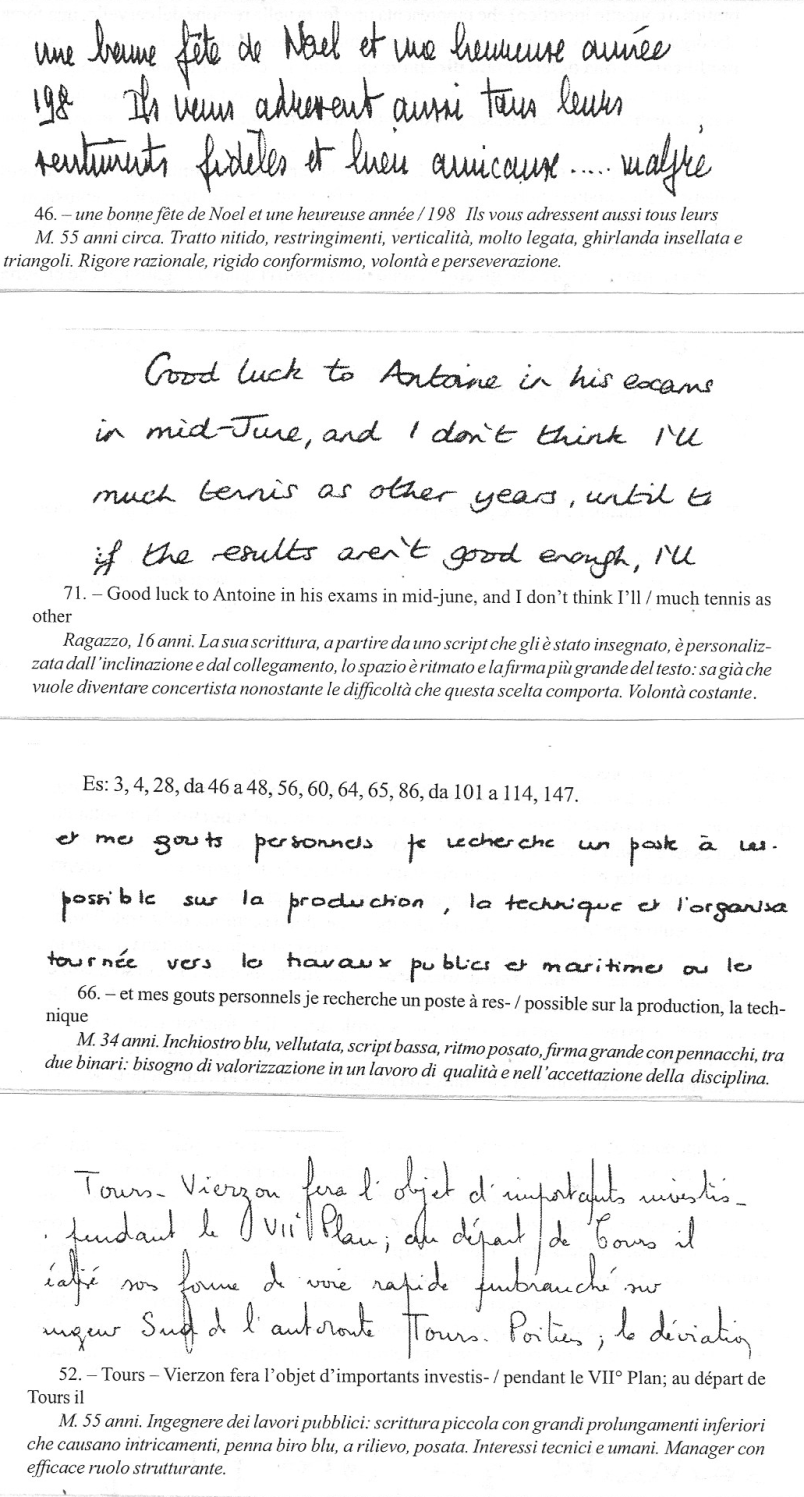 une bonne fête de Noel et une heureuse année
198 Ils vous adressent aussi tous leurs
sentiments fidèles et bien amicaux ..... malgré
46. – une bonne fête de Noel et une heureuse année / 198 Ils vous adressent aussi tous leurs
M. 55 anni circa. Tratto nitido, restringimenti, verticalità, molto legata, ghirlanda insellata e
triangoli. Rigore razionale, rigido conformismo, volontà e perseverazione.
Good luck to Antoine in his exams
in mid-June, and I don't think I'll
much tennis as other years, until to
if the results aren't good enough, I'll
71. – Good luck to Antoine in his exams in mid-june, and I don't think I'll / much tennis as
other
Ragazzo, 16 anni. La sua scrittura, a partire da uno script che gli è stato insegnato, è personaliz-
zata dall'inclinazione e dal collegamento, lo spazio è ritmato e la firma più grande del testo: sa già che
vuole diventare concertista nonostante le difficoltà che questa scelta comporta. Volontà costante.
Es: 3, 4, 28, da 46 a 48, 56, 60, 64, 65, 86, da 101 a 114, 147.
et mes gouts personnels je recherche un poste à res-
possible sur la production, la technique et l'organisa
tournée vers les travaux publics et maritimes ou les
66. – et mes gouts personnels je recherche un poste à res- / possible sur la production, la tech-
nique
M. 34 anni. Inchiostro blu, vellutata, script bassa, ritmo posato, firma grande con pennacchi, tra
due binari: bisogno di valorizzazione in un lavoro di qualità e nell'accettazione della disciplina.
Tours - Vierzon fera l'objet d'importants investis-
. pendant le VII° Plan; au départ de Tours il
éalisé sous forme de voie rapide embranché sur
majeur Sud de l'autoroute Tours. Poitiers; la déviation
52. – Tours – Vierzon fera l'objet d'importants investis- / pendant le VII° Plan; au départ de
Tours il
M. 55 anni. Ingegnere dei lavori pubblici: scrittura piccola con grandi prolungamenti inferiori
che causano intricamenti, penna biro blu, a rilievo, posata. Interessi tecnici e umani. Manager con
efficace ruolo strutturante.